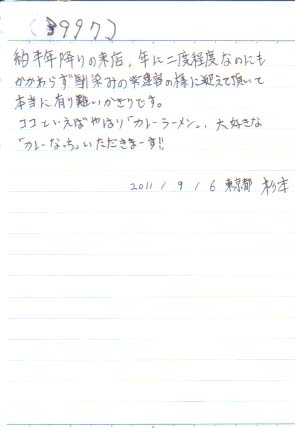 (3997)
約半年降りの来店。年に二度程度なのにも
かかわらず馴染みの常連客の様に迎えて頂いて
本当に有り難いかぎりです。
ココといえばやはり「カレーラーメン」、大好きな
「カレーなっち」いただきまーす!!
2011/9/6 東京都 杉本